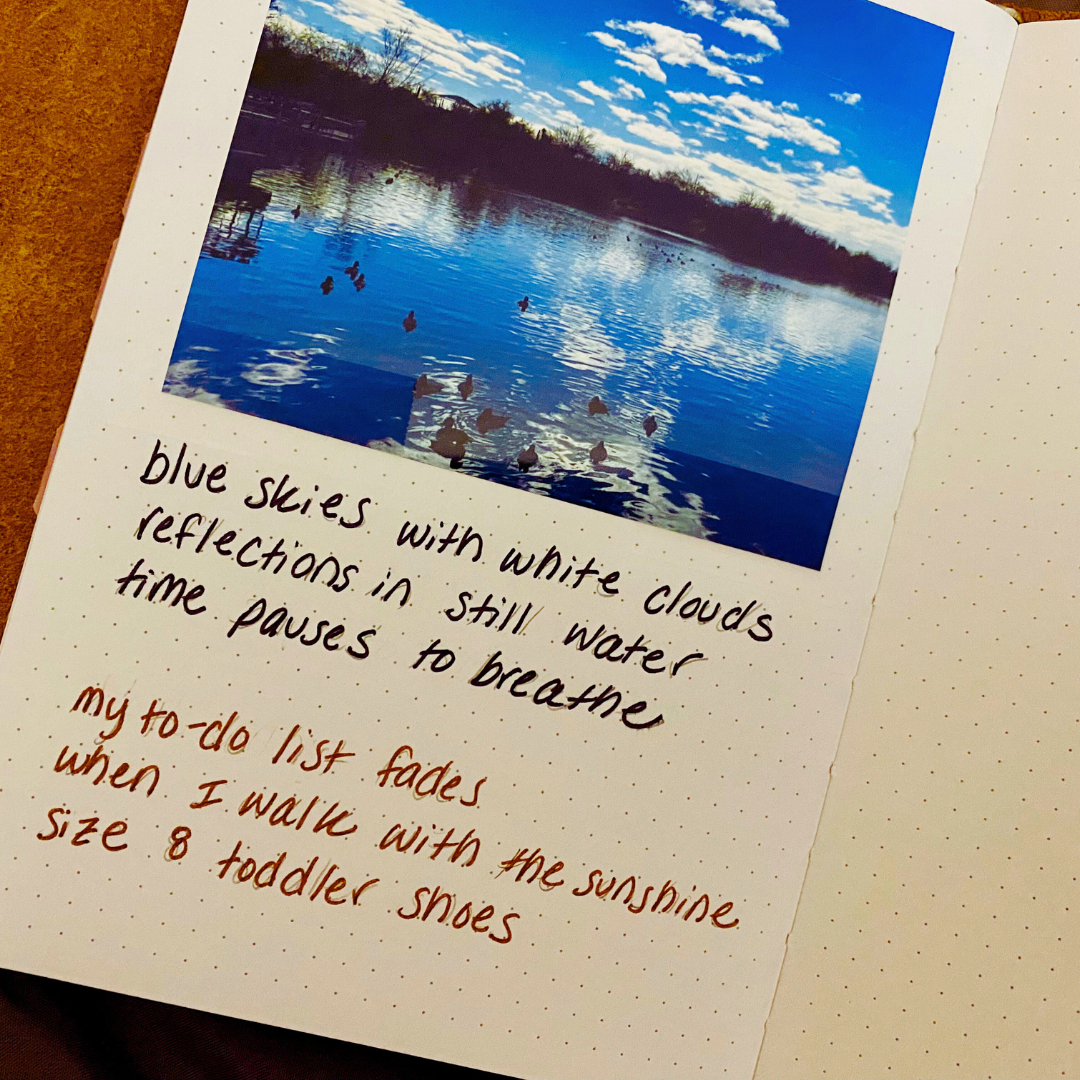 blue skies with white clouds
reflections in still water
time pauses to breathe
my to-do list fades
when I walk with the sunshine
size 8 toddler shoes